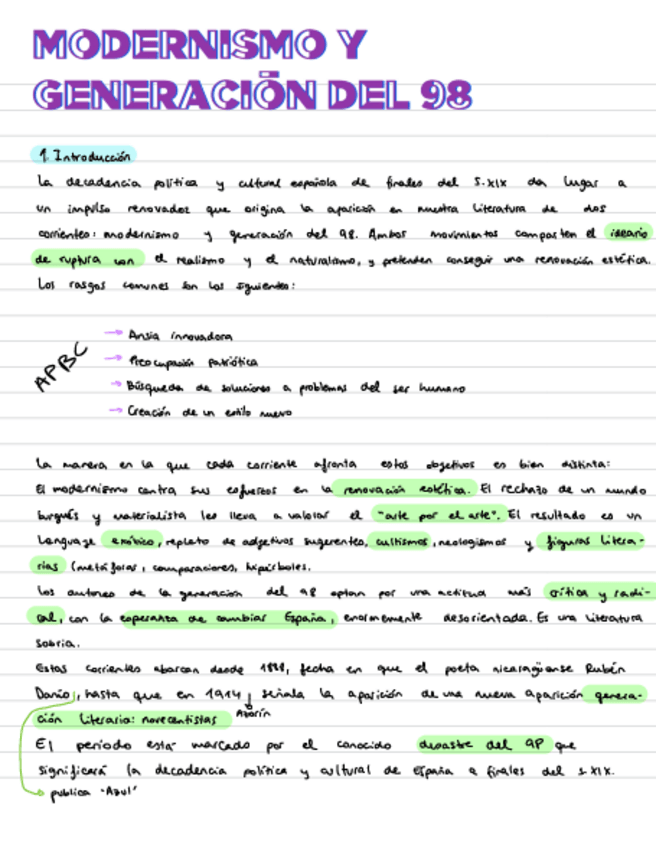 MODERNISMO Y
GENERACIÓN DEL 98
1. Introducción
La decadencia política y cultural española de finales del S.XIX da lugar a
un impulso renovador que origina la aparición en nuestra literatura de dos
corrientes: modernismo y generación del 98. Ambos movimientos comparten el ideario
de ruptura con el realismo y el naturalismo, y pretenden conseguir una renovación estética.
Los rasgos comunes son los siguientes:
→ Ansia innovadora
APBC → Preocupación patriótica
→ Búsqueda de soluciones a problemas del ser humano
→ Creación de un estilo nuevo
La manera en la que cada corriente afronta estos objetivos es bien distinta:
El modernismo centra sus esfuerzos en la renovación estética. El rechazo de un mundo
burgués y materialista les lleva a valorar el "arte por el arte". El resultado es un
lenguaje exótico, repleto de adjetivos sugerentes, cultismos, neologismos y figuras litera-
rias (metáforas, comparaciones, hipérboles.
Los autores de la generación del 98 optan por una actitud más crítica y radi-
cal, con la esperanza de cambiar España, enormemente desorientada. Es una literatura
sobria.
Estas corrientes abarcan desde 1888, fecha en que el poeta nicaragüense Rubén
Darío, hasta que en 1914, señala la aparición de una nueva aparición genera-
ción literaria: novecentistas Azorín
El período está marcado por el conocido desastre del 98 que
significará la decadencia política y cultural de España a finales del s.XIX.
→ publica "Azul"